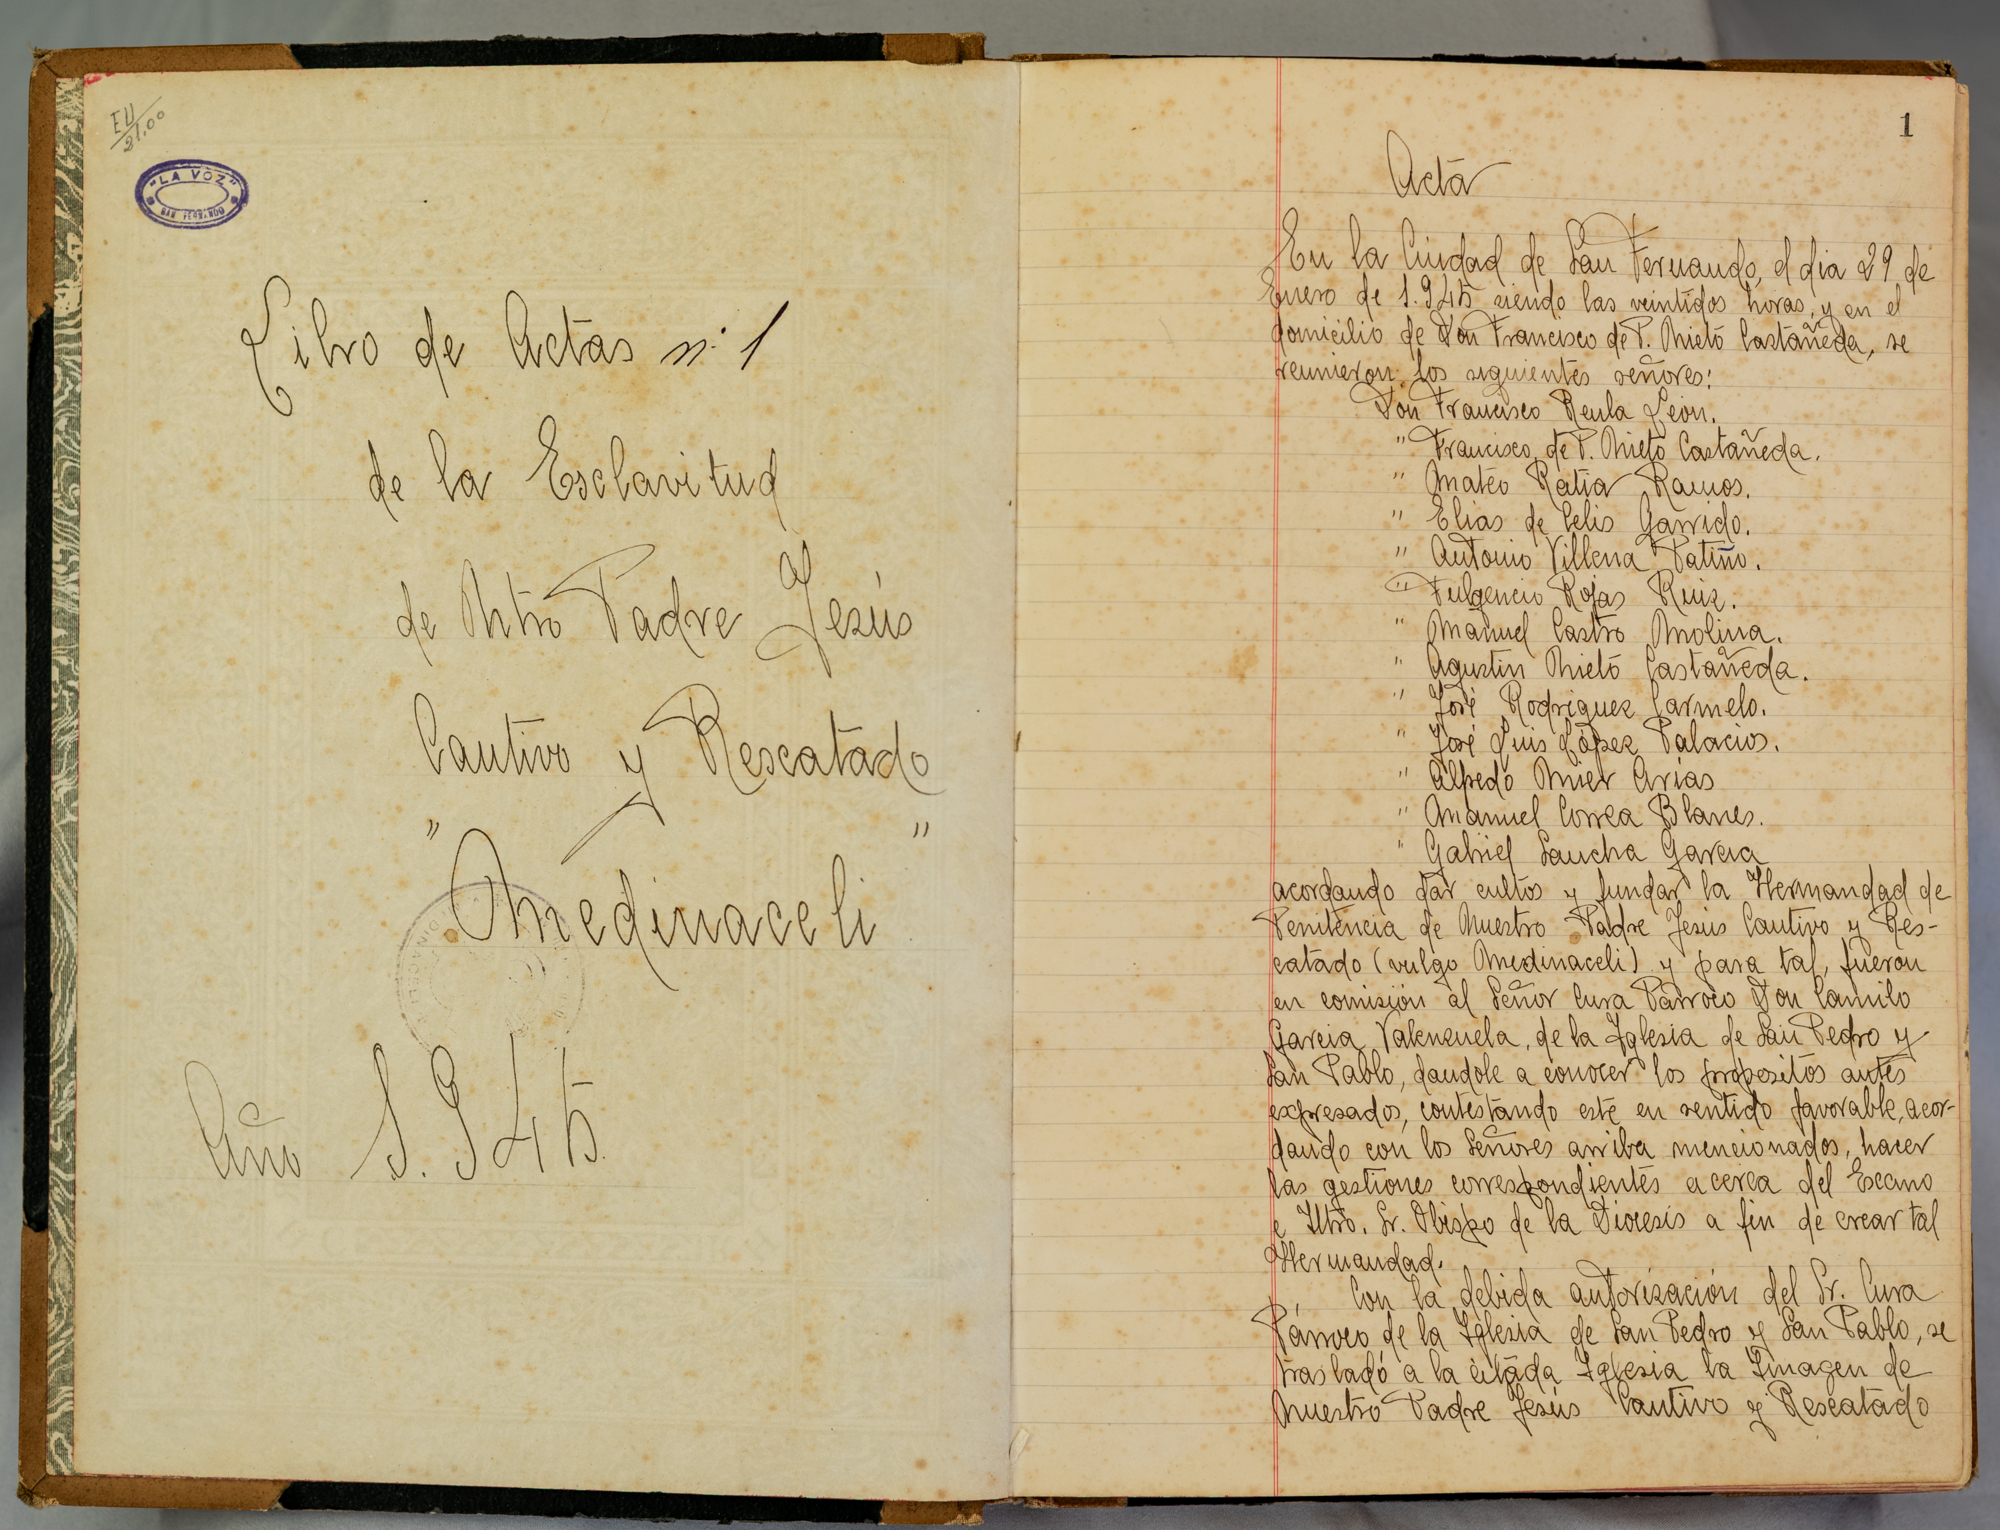 EU
21,00
"LA VOZ"
SAN FERNANDO
Libro de Actas n.º 1
de la Esclavitud
de Ntro Padre Jesús
Cautivo y Rescatado
" "
Medinaceli
Año 1.945.
1
Acta
En la Ciudad de San Fernando, el dia 29 de
Enero de 1.945 siendo las veintidos horas, y en el
domicilio de Don Francisco de P. Nieto Castañeda, se
reunieron los siguientes señores:
Don Francisco Reula León.
" Francisco de P. Nieto Castañeda.
" Mateo Ratia Ramos.
" Elias de Celis Garrido.
" Antonio Villena Patiño.
" Fulgencio Rojas Ruiz.
" Manuel Castro Molina.
" Agustin Nieto Castañeda.
" José Rodriguez Carmelo.
" José Luis López Palacios.
" Alfredo Mier Arias
" Manuel Correa Blanes.
" Gabriel Saucha Garcia
acordando dar cultos y fundar la Hermandad de
Penitencia de Nuestro Padre Jesús Cautivo y Res-
catado (vulgo Medinaceli) y para tal, fueron
en comisión al Señor Cura Párroco Don Camilo
Garcia Valenzuela, de la Iglesia de San Pedro y
San Pablo, dandole a conocer los propositos antes
expresados, contestando este en sentido favorable, acor-
dando con los Señores arriba mencionados, hacer
las gestiones correspondientes acerca del Excmo
e Iltro. Sr. Obispo de la Diocesis a fin de crear tal
Hermandad.
Con la debida autorización del Sr. Cura
Párroco de la Iglesia de San Pedro y San Pablo, se
trasladó a la citada Iglesia la Imagen de
Nuestro Padre Jesús Cautivo y Rescatado